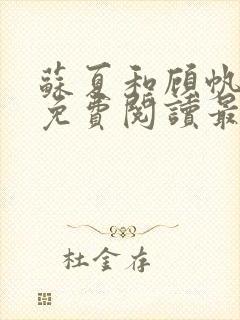 蘇夏和顧帆
免費閱讀最
杜金存